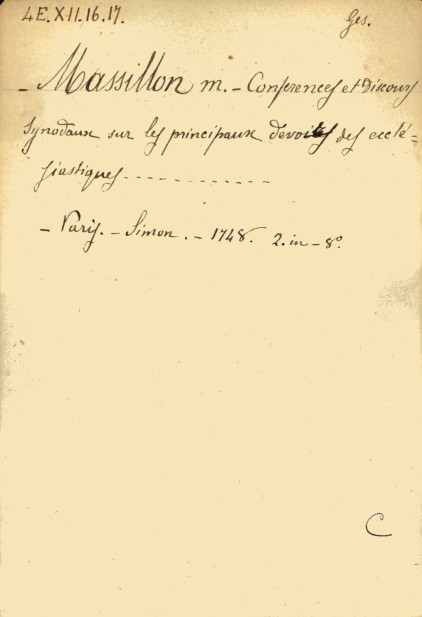 4E.XII.16.17. Ges.
- Massillon m. - Conferences et Discours
synodaux sur les principaux devoirs des ecclé=
siastiques - - - - - - - - - - -
- Paris. - Simon. - 1748. 2. in - 8°.
C